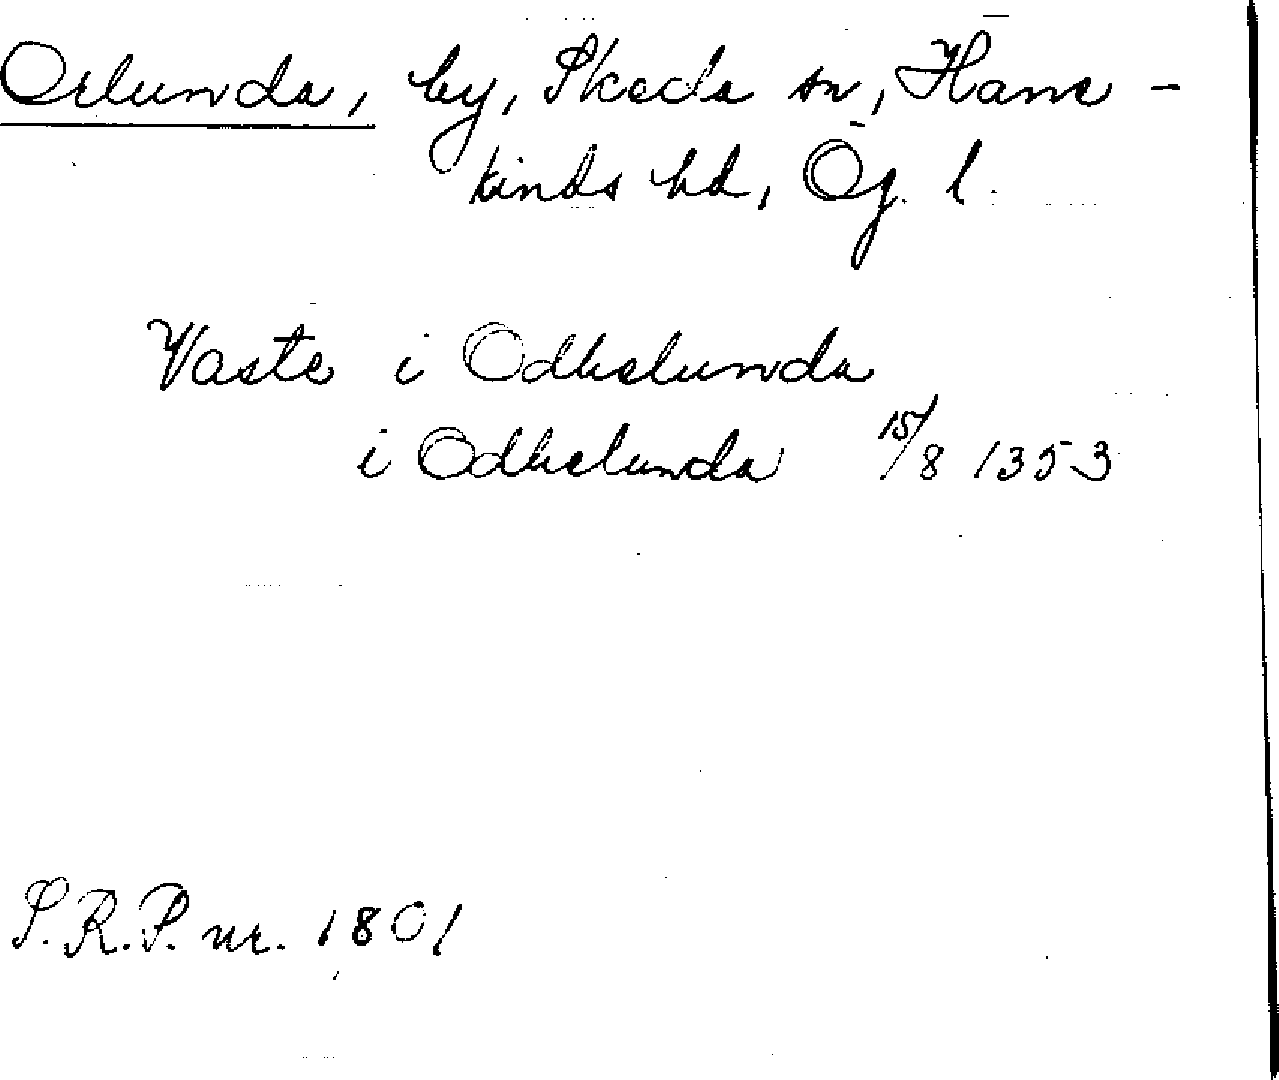 Orlunda, by, Skeda sn, Hane-
kinds hd, Ög. l.
Vaste i Odhelunda
i Odhelunda 15/8 1353
S.R.P. nr. 1801